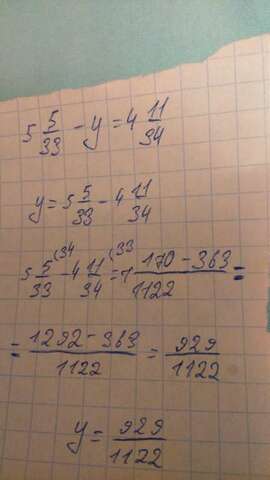 5 5/33 - y = 4 11/34
y = 5 5/33 - 4 11/34
5 5/33 (34 - 4 11/34 (33 = 1 170 - 363/1122 =
= 1292 - 363/1122 = 929/1122
y = 929/1122